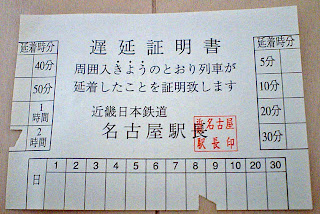 遅延証明書
周囲入きようのとおり列車が
延着したことを証明致します
近畿日本鉄道
名古屋駅長
近名古屋
駅長印
延着時分
40分
50分
1時間
2時間
延着時分
5分
10分
20分
30分
日 1 2 3 4 5 6 7 8 9 10 20 30